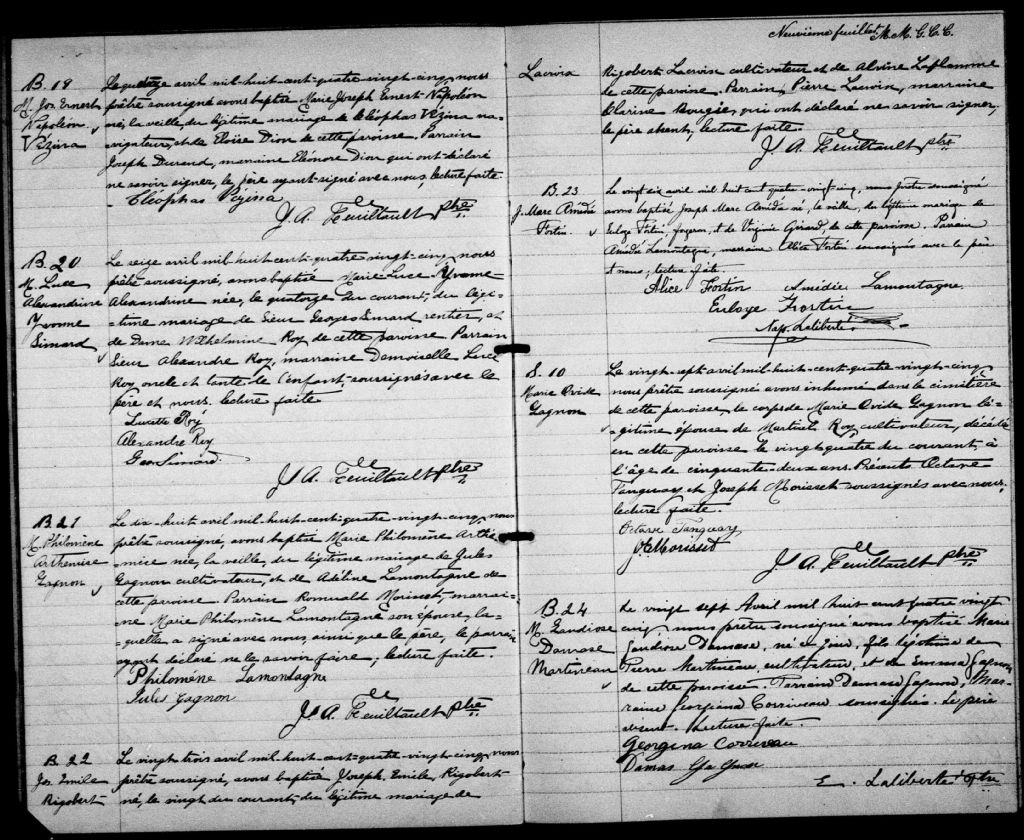 B. 19
M. Jos. Ernest
Napoléon
Vézina
Le quatorze avril mil-huit-cent-quatre-vingt-cinq, nous
prêtre soussigné avons baptisé Marie Joseph Ernest Napoléon
né, la veille, du légitime mariage de Cléophas Vézina na-
vigateur, et de Eloïse Dion de cette paroisse. Parrain
Joseph Durand, marraine Eléonore Dion qui ont déclaré
ne savoir signer, le père ayant signé avec nous, lecture faite.
Cléophas Vézina
J. A. Feuiltault ptre
B. 20
M. Luce
Alexandrine
Yvonne
Simard
Le seize avril mil-huit-cent-quatre-vingt-cinq, nous
prêtre soussigné, avons baptisé Marie-Luce-Yvonne-
Alexandrine née, le quatorze du courant, du légi-
-time mariage de Sieur Georges Simard rentier, et
de Dame Wilhelmine Roy de cette paroisse Parrain
Sieur Alexandre Roy, marraine Demoiselle Luce
Roy oncle et tante de l'enfant, soussignés avec le
père et nous. lecture faite
Lucette Roÿ
Alexandre Roy
Geo Simard
J. A. Feuiltault ptre
B. 21
M. Philomène
Arthemise
Gagnon
Le dix-huit avril mil-huit-cent-quatre-vingt-cinq, nous
prêtre soussigné, avons baptisé Marie Philomène Arthé-
mise née, la veille, du légitime mariage de Jules
Gagnon cultivateur, et de Adéline Lamontagne de
cette paroisse. Parrain Romuald Morisset, marrai-
ne Marie Philomène Lamontagne son épouse, la-
quelle a signé avec nous, ainsi que le père, le parrain
ayant déclaré ne le savoir faire, lecture faite.
Philomène Lamontagne
Jules Gagnon
J. A. Feuiltault ptre
B. 22
Jos. Emile
Rigobert
Le vingt-trois avril mil-huit-cent-quatre-vingt-cinq, nous
prêtre soussigné, avons baptisé Joseph, Emile, Rigobert
né, le vingt du courant, du légitime mariage de
Neuvième feuillet. M. M. G. C. C.
Lacroix
Rigobert Lacroix cultivateur et de Alvine Laflamme
de cette paroisse. Parrain, Pierre Lacroix, marraine
Clarine Bougie, qui ont déclaré ne savoir signer,
le père absent, lecture faite.
J. A. Feuiltault ptre
B. 23
J. Marc Amédé
Fortin
Le vingt six avril mil huit cent quatre-vingt-cinq, nous prêtre soussigné
avons baptisé Joseph Marc Amédé né, la veille, du légitime mariage de
Euloge Fortin, forgeron, et de Virginie Girard, de cette paroisse. Parrain
Amédé Lamontagne, marraine Alice Fortin soussignés avec le père
et nous, lecture faite.
Alice Fortin Amédie Lamontagne.
Euloge Fortin
Nap. Laliberté
S. 10
Marie Ovide
Gagnon
Le vingt-sept avril mil-huit-cent-quatre-vingt-cinq,
nous prêtre soussigné avons inhumé dans le cimitière
de cette paroisse, le corps de Marie Ovide Gagnon lé-
-gitime épouse de Martial Roy cultivateur, décédée
en cette paroisse le vingt-quatre du courant, à
l'âge de cinquante-deux ans. Présents Octave
Tanguay et Joseph Morisset soussignés avec nous,
lecture faite.
Octave Tanguay
Jh Morisset
J. A. Feuiltault ptre
B. 24
M. Gaudiose
Damase
Martineau
Le vingt sept Avril mil huit cent quatre vingt
cinq nous prêtre soussigné avons baptisé Marie
Gaudiose Damase, né ce jour, fils légitime de
Pierre Martineau cultivateur, et de Emma Gagnon
de cette paroisse. Parrain Damase Gagnon, Mar-
raine Georgiana Corriveau soussignés. Le père
absent. Lecture faite.
Georgina Corriveau
Damas Gagnon
E. Laliberté Ptre